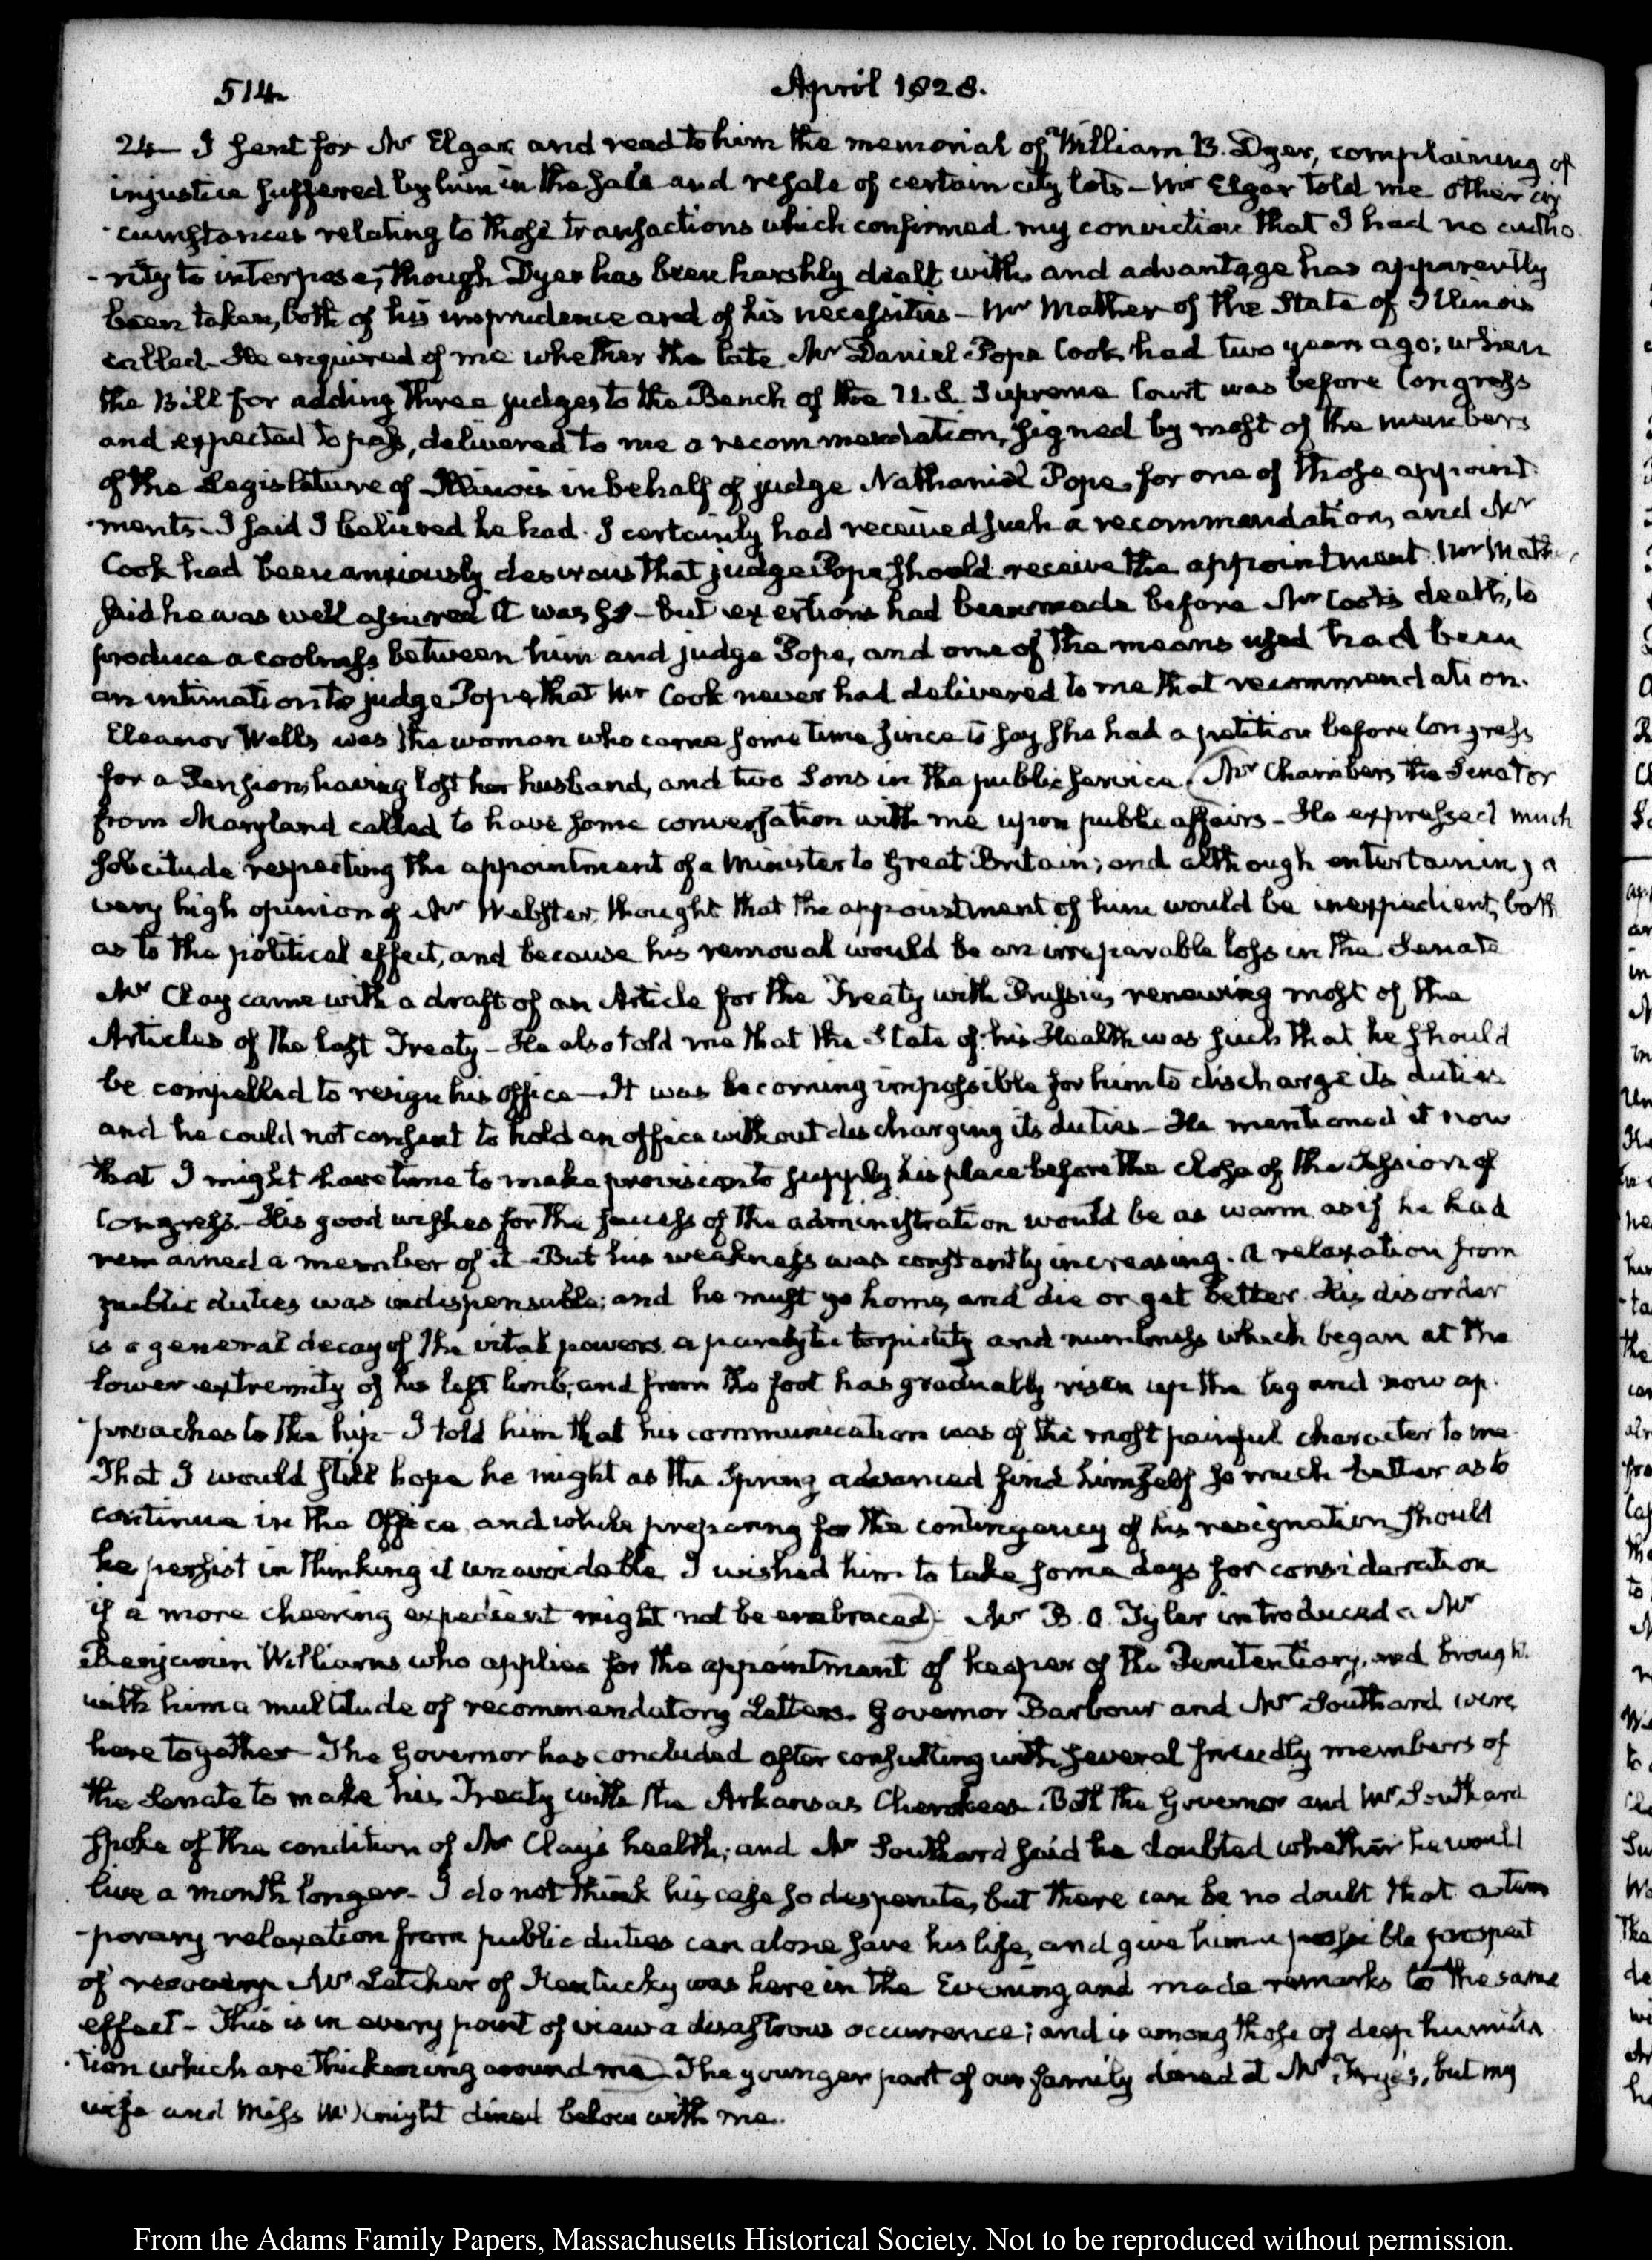 514
April 1828.
24— I sent for Mr Elgar and read to him the memorial of William B. Dyer, complaining of
injustice suffered by him in the sale and resale of certain city lots— Mr Elgar told me other cir
-cumstances relating to those transactions which confirmed my conviction that I had no autho
-rity to interpose, though Dyer has been harshly dealt with and advantage has apparently
been taken, both of his imprudence and of his necessities— Mr Mather of the State of Illinois
called— He enquired of me whether the late Mr Daniel Pope Cook had two years ago; when
the Bill for adding three judges to the Bench of the U.S. Supreme Court was before Congress
and expected to pass, delivered to me a recommendation, signed by most of the members
of the Legislature of Illinois in behalf of judge Nathaniel Pope, for one of those appoint
-ments— I said I believed he had. I certainly had received such a recommendation, and Mr
Cook had been anxiously desirous that judge Pope should receive the appointment. Mr
said he was well assured it was so— but exertions had been made before Mr Cook's death, to
produce a coolness between him and judge Pope, and one of the means used had been
an intimation to judge Pope that Mr Cook never had delivered to me that recommendation.
Eleanor Wells was the woman who came some time since to say she had a petition before Congress
for a Pension, having lost her husband, and two Sons in the public service. Mr Chambers the Senator
from Maryland called to have some conversation with me upon public affairs— He expressed much
solicitude respecting the appointment of a Minister to Great Britain; and although entertaining a
very high opinion of Mr Webster, thought that the appointment of him would be inexpedient, both
as to the political effect, and because his removal would be an irreparable loss in the Senate
Mr Clay came with a draft of an Article for the Treaty with Prussia, renewing most of the
Articles of the last Treaty— He also told me that the State of his Health was such that he should
be compelled to resign his office— It was becoming impossible for him to discharge its duties
and he could not consent to hold an office without discharging its duties— He mentioned it now
that I might have time to make provision to supply his place before the close of the Session of
Congress— His good wishes for the success of the administration would be as warm as if he had
remained a member of it— But his weakness was constantly increasing. A relaxation from
public duties was indispensable; and he must go home, and die or get better. His disorder
is a general decay of the vital powers, a paralytic torpidity and numbness which began at the
lower extremity of his left limb, and from the foot has gradually risen up the leg and now ap.
-proaches to the hip— I told him that his communication was of the most painful character to me.
That I would still hope he might as the Spring advanced find himself so much better as to
continue in the Office, and while preparing for the contingency of his resignation should
he persist in thinking it unavoidable I wished him to take some days for consideration
if a more cheering expedient might not be embraced. Mr B. O. Tyler introduced a Mr
Benjamin Williams who applies for the appointment of keeper of the Penitentiary, and brought
with him a multitude of recommendatory Letters. Governor Barbour and Mr Southard were
here together— The Governor has concluded after consulting with several friendly members of
the Senate to make his Treaty with the Arkansas Cherokees. Both the Governor and Mr Southard
spoke of the condition of Mr Clay's health; and Mr Southard said he doubted whether he would
live a month longer— I do not think his case so desperate, but there can be no doubt that a tem
-porary relaxation from public duties can alone save his life, and give him a possible prospect
of recovery. Mr Letcher of Kentucky was here in the Evening and made remarks to the same
effect— This is in every point of view a disastrous occurrence; and is among those of deep humilia
-tion which are thickening around me— The younger part of our family dined at Mr Frye's, but my
wife and Miss McKnight dined below with me.
From the Adams Family Papers, Massachusetts Historical Society. Not to be reproduced without permission.